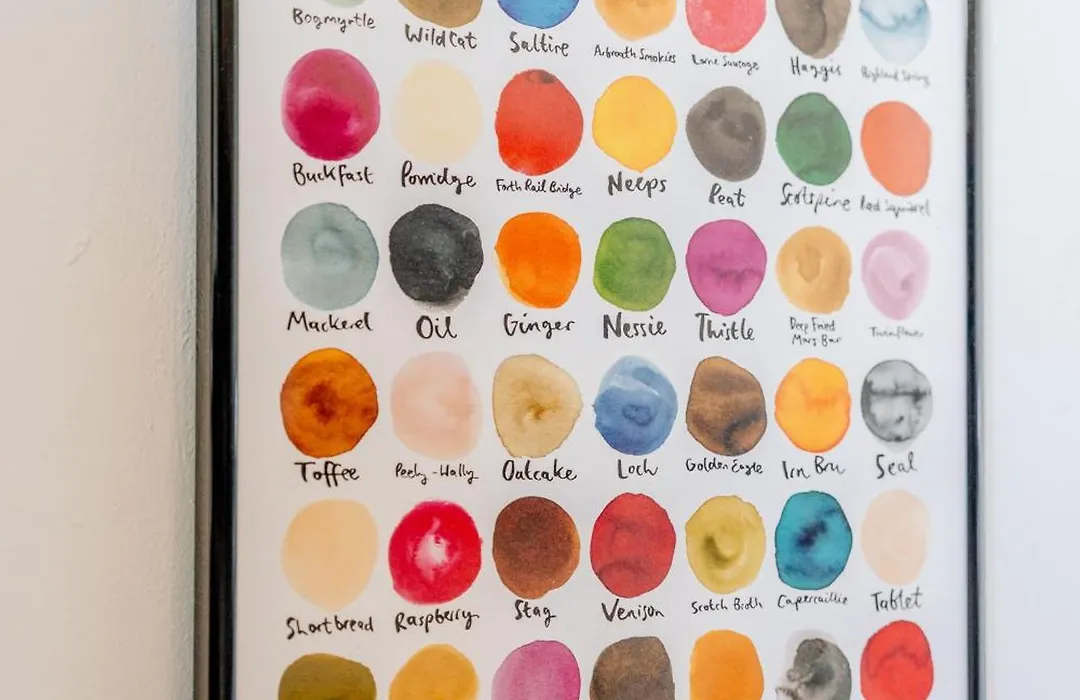 Bogmyrtle
Wild Cat
Saltire
Arbroath Smokies
Lorne Sausage
Haggis
Highland Spring
Buckfast
Porridge
Forth Rail Bridge
Neeps
Peat
Scotspine
Red Squirrel
Mackerel
Oil
Ginger
Nessie
Thistle
Deep Fried
Mars Bar
Twinflower
Toffee
Peely-Wally
Oatcake
Loch
Golden Eagle
Irn Bru
Seal
Shortbread
Raspberry
Stag
Venison
Scotch Broth
Capercaillie
Tablet